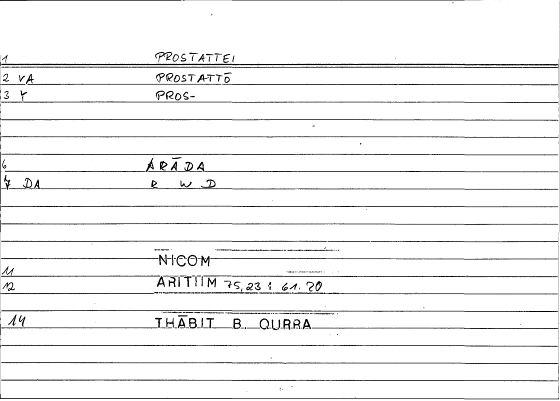 1 PROSTATTEI
2 VA PROSTATTŌ
3 Y PROS-
6 ARĀDA
7 DA R W D
NICOM
11
12 ARITIIM 75,23 : 61.20
14 THĀBIT B. QURRA